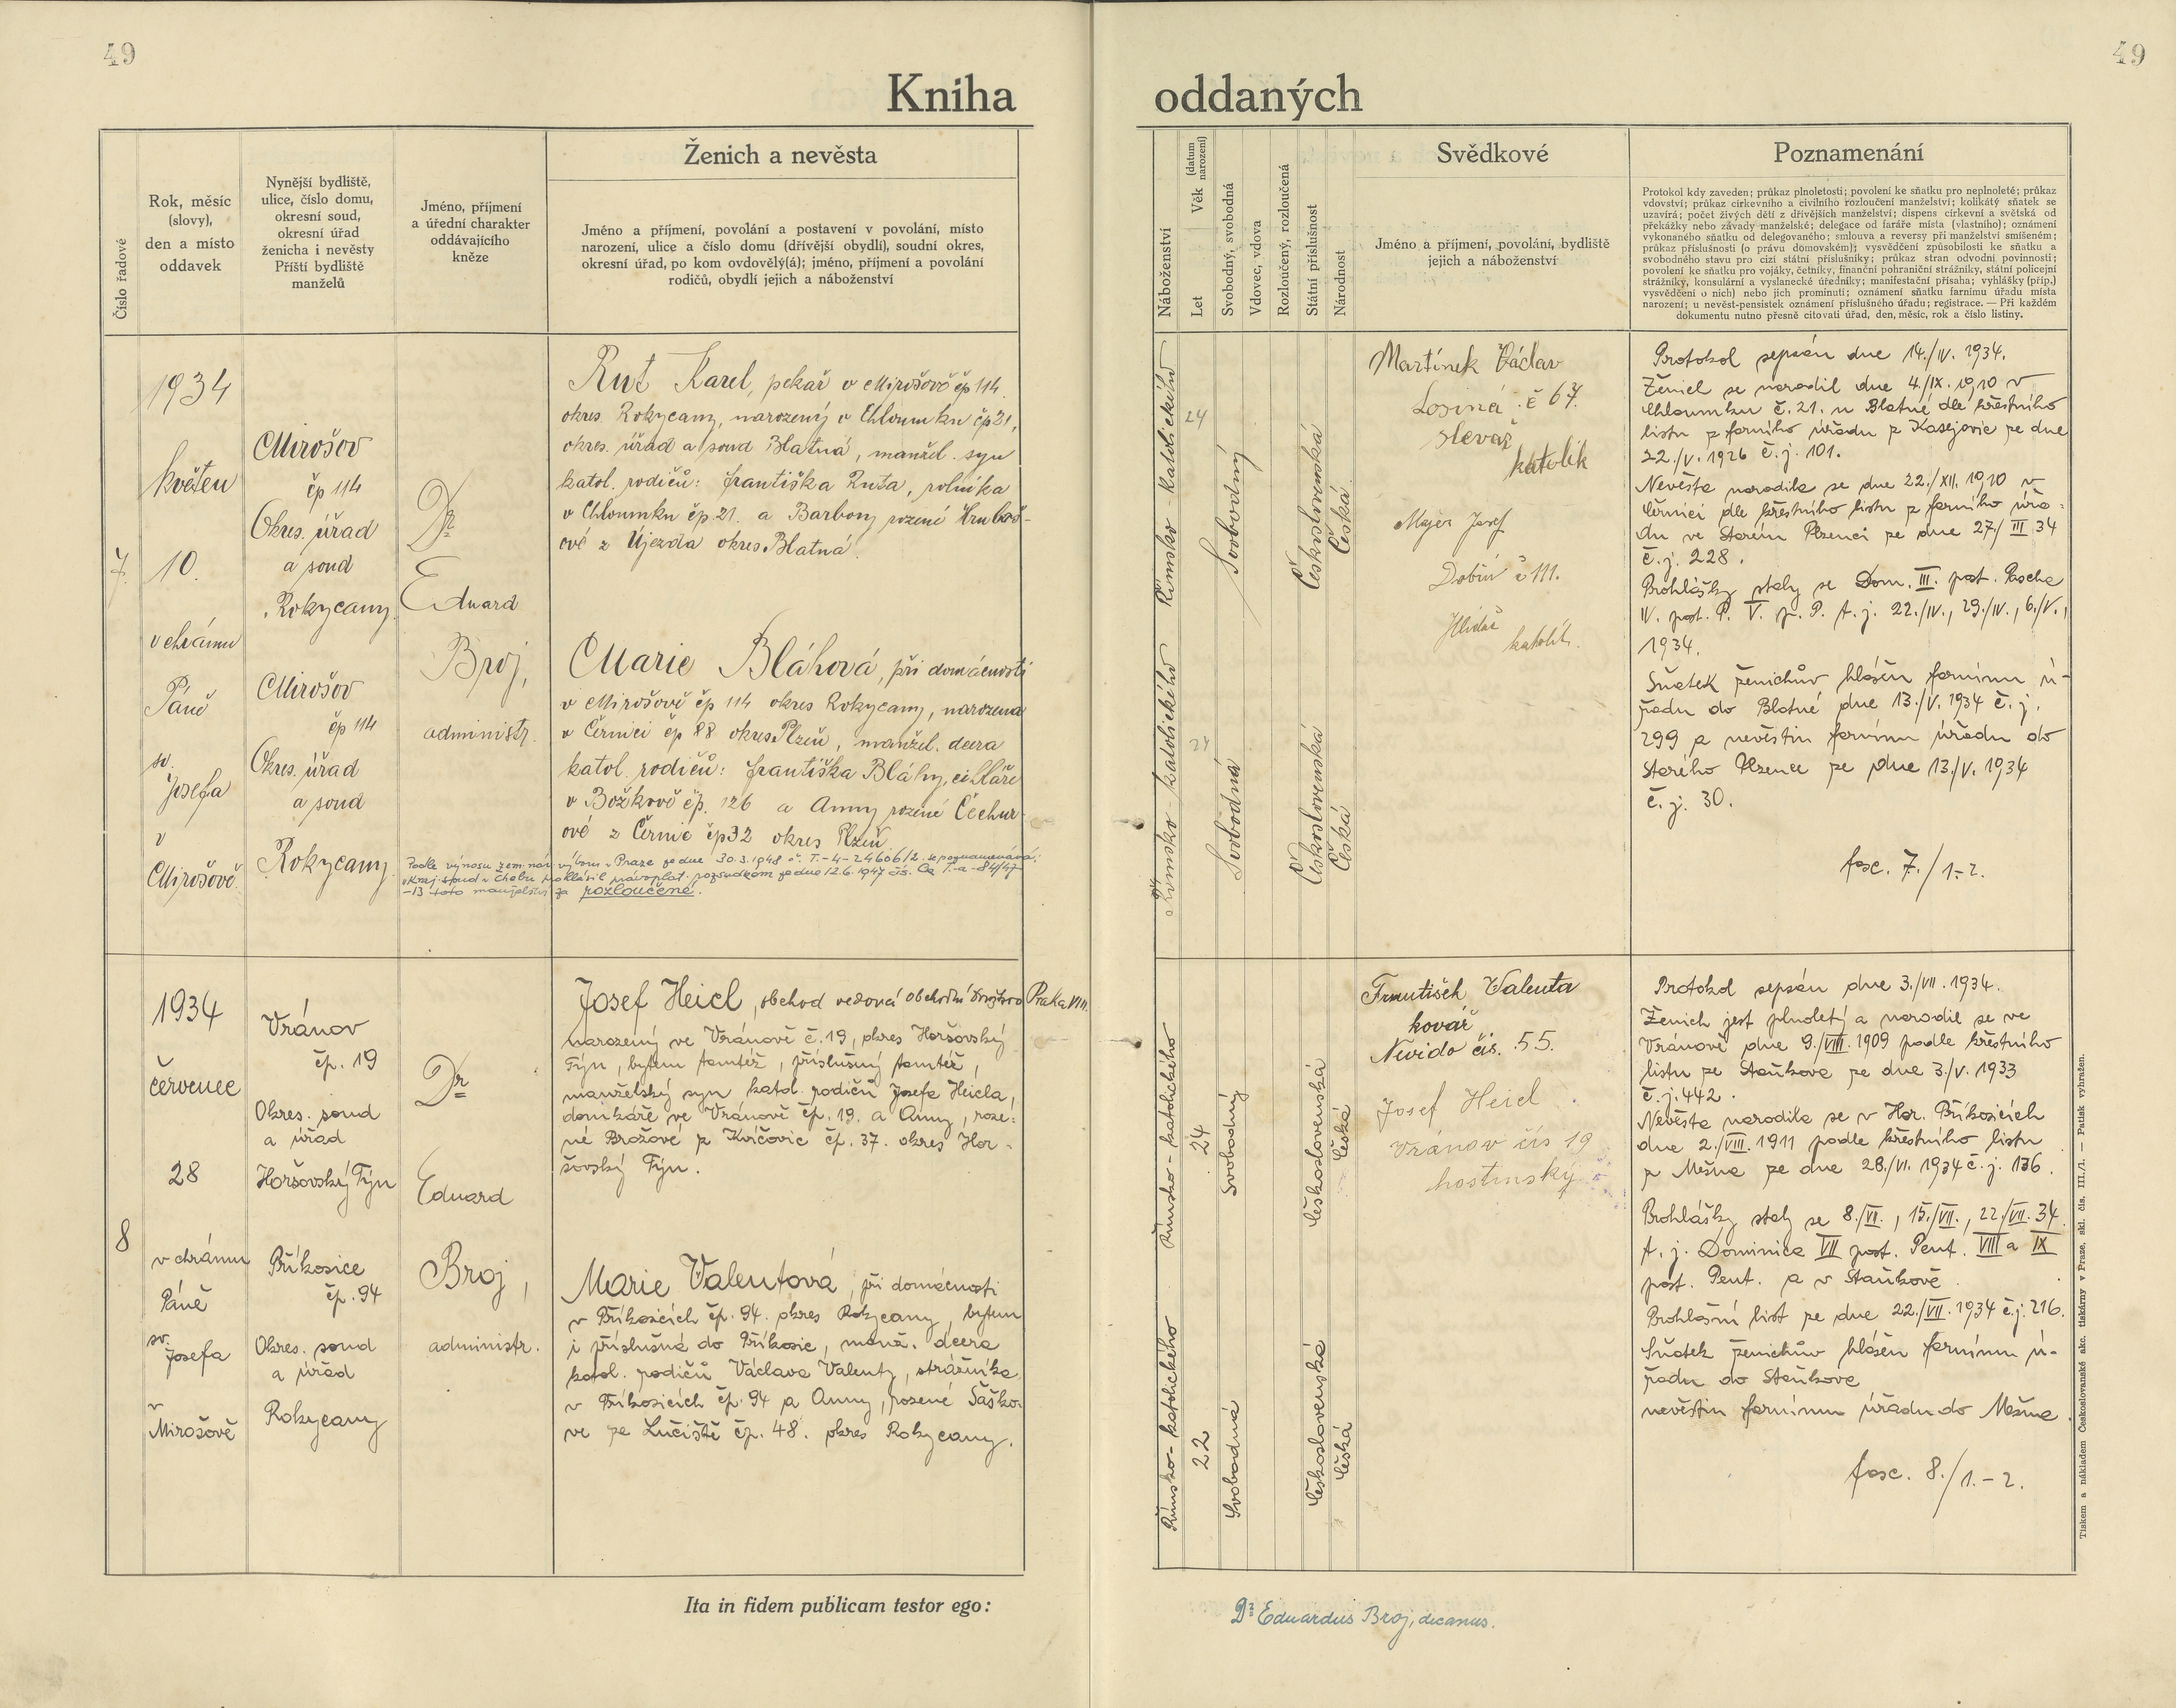 49
49
Kniha
oddaných
Číslo řadové
Rok, měsíc
(slovy),
den a místo
oddavek
Nynější bydliště,
ulice, číslo domu,
okresní soud,
okresní úřad
ženicha i nevěsty
Příští bydliště
manželů
Jméno, příjmení
a úřední charakter
oddávajícího
kněze
Ženich a nevěsta
Jméno a příjmení, povolání a postavení v povolání, místo
narození, ulice a číslo domu (dřívější obydlí), soudní okres,
okresní úřad, po kom ovdovělý(á); jméno, příjmení a povolání
rodičů, obydlí jejich a náboženství
Náboženství
Let Věk (datum narození)
Svobodný, svobodná
Vdovec, vdova
Rozloučený, rozloučená
Státní příslušnost
Národnost
Svědkové
Jméno a příjmení, povolání, bydliště
jejich a náboženství
Poznamenání
Protokol kdy zaveden; průkaz plnoletosti; povolení ke sňatku pro neplnoleté; průkaz
vdovství; průkaz církevního a civilního rozloučení manželství; kolikátý sňatek se
uzavírá; počet živých dětí z dřívějších manželství; dispens církevní a světská od
překážky nebo závady manželské; delegace od faráře místa (vlastního); oznámení
vykonaného sňatku od delegovaného; smlouva a reversy při manželství smíšeném;
průkaz příslušnosti (o právu domovském); vysvědčení způsobilosti ke sňatku a
svobodného stavu pro cizí státní příslušníky; průkaz stran odvodní povinnosti;
povolení ke sňatku pro vojáky, četníky, finanční pohraniční strážníky, státní policejní
strážníky, konsulární a vyslanecké úředníky; manifestační přísaha; vyhlášky (příp.)
vysvědčení o nich) nebo jich prominutí; oznámení sňatku farnímu úřadu místa
narození; u nevěst-pensistek oznámení příslušného úřadu; registrace. — Při každém
dokumentu nutno přesně citovati úřad, den, měsíc, rok a číslo listiny.
7.
1934
květen
10.
v chrámu
Páně
sv.
Josefa
v
Mirošově
Mirošov
čp 114
Okres. úřad
a soud
Rokycany.
Mirošov
čp 114
Okres. úřad
a soud
Rokycany.
Dr
Eduard
Broj,
administr.
Rut Karel, pekař v Mirošově čp 114.
okres Rokycany, narozený v Chloumku čp 21,
okres. úřad a soud Blatná, manžel. syn
katol. rodičů: Františka Ruta, rolníka
v Chloumku čp. 21. a Barbory rozené Hrubeš-
ové z Újezda okres Blatná.
Marie Bláhová, při domácnosti
v Mirošově čp 114 okres Rokycany, narozena
v Černici čp 88 okres Plzeň, manžel. dcera
katol. rodičů: Františka Bláhy, cihláře
v Božkově čp. 126 a Anny rozené Čechur-
ové z Černic čp 32 okres Plzeň.
Podle výnosu zem. nár. výboru v Praze ze dne 30.3.1948 č. I.-4-24606/2. se poznamenává:
Kraj. soud v Chebu prohlásil právoplat. rozsudkem ze dne 12.6.1947 čís. Ck I.-a-84/47
-13 toto manželství za rozloučené.
Římsko - katolického
24
Svobodný
Československá
Česká
Římsko - katolického
24
Svobodná
Československá
Česká
Martínek Václav
Losiná č 67.
slevač
katolík
Majer Josef
Dobřív č 111.
Hlídač
katolík.
Protokol sepsán dne 14./IV. 1934.
Ženich se narodil dne 4./IX. 1910 v
Chloumku č. 21. u Blatné dle křestního
listu z farního úřadu z Kasejovic ze dne
22./V. 1926 č. j. 101.
Nevěsta narodila se dne 22./XII. 1910 v
Černici dle křestního listu z farního úřa-
du ve Starém Plzenci ze dne 27./III 34
č. j. 228.
Prohlášky staly se Dom. III. post. Pascha
IV. post. P. V. p. P. t. j. 22./IV., 29./IV., 6./V.,
1934.
Sňatek ženichův hlášen farnímu ú-
řadu do Blatné dne 13./V. 1934 č. j.
299 a nevěstin farnímu úřadu do
Starého Plzence ze dne 13./V. 1934
č. j. 30.
fasc. 7./1-2.
8
1934
červenec
28
v chrámu
Páně
sv.
Josefa
v
Mirošově
Vránov
čp. 19
Okres. soud
a úřad
Horšovský Týn
Příkosice
čp. 94
Okres. soud
a úřad
Rokycany
Dr
Eduard
Broj,
administr.
Josef Heicl, obchod vedoucí obchodní družstvo Praha VIII.
narozený ve Vránově č. 19, okres Horšovský
Týn, bytem tamtéž, příslušný tamtéž,
manželský syn katol. rodičů Josefa Heicla,
domkáře ve Vránově čp. 19. a Anny, roze-
né Brožové z Kvíčovic čp. 37. okres Hor-
šovský Týn.
Marie Valentová, při domácnosti
v Příkosicích čp. 94. okres Rokycany, bytem
i příslušná do Příkosic, manž. dcera
katol. rodičů Václava Valenty, strážníka
v Příkosicích čp. 94 a Anny, rozené Šaško-
ve ze Lučiště čp. 48. okres Rokycany.
Římsko - katolického
24
Svobodný
Československá
Česká
Římsko - katolického
22
Svobodná
Československá
Česká
František Valenta
kovář
Nevido čís. 55.
Josef Heicl
Vránov čís 19
hostinský
Protokol sepsán dne 3./VII. 1934.
Ženich jest plnoletý a narodil se ve
Vránově dne 9./VIII. 1909 podle křestního
listu ze Staňkova ze dne 3./V. 1933
č. j. 442.
Nevěsta narodila se v Hor. Příkosicích
dne 2./VIII. 1911 podle křestního listu
z Mešna ze dne 28./VI. 1934 č. j. 136.
Prohlášky staly se 8./VI., 15./VII., 22./VII. 34
t. j. Dominica VII post. Pent. VIII a IX
post. Pent. a v Staňkově.
Prohlašní list ze dne 22./VII. 1934 č. j. 216.
Sňatek ženichův hlášen farnímu ú-
řadu do Staňkova
nevěstin farnímu úřadu do Mešna.
fasc. 8./1.-2.
Tiskem a nákladem Českoslovanské akc. tiskárny v Praze, skl. čís. III./1. — Patisk vyhražen.
Ita in fidem publicam testor ego:
Dr Eduardus Broj, decanus.